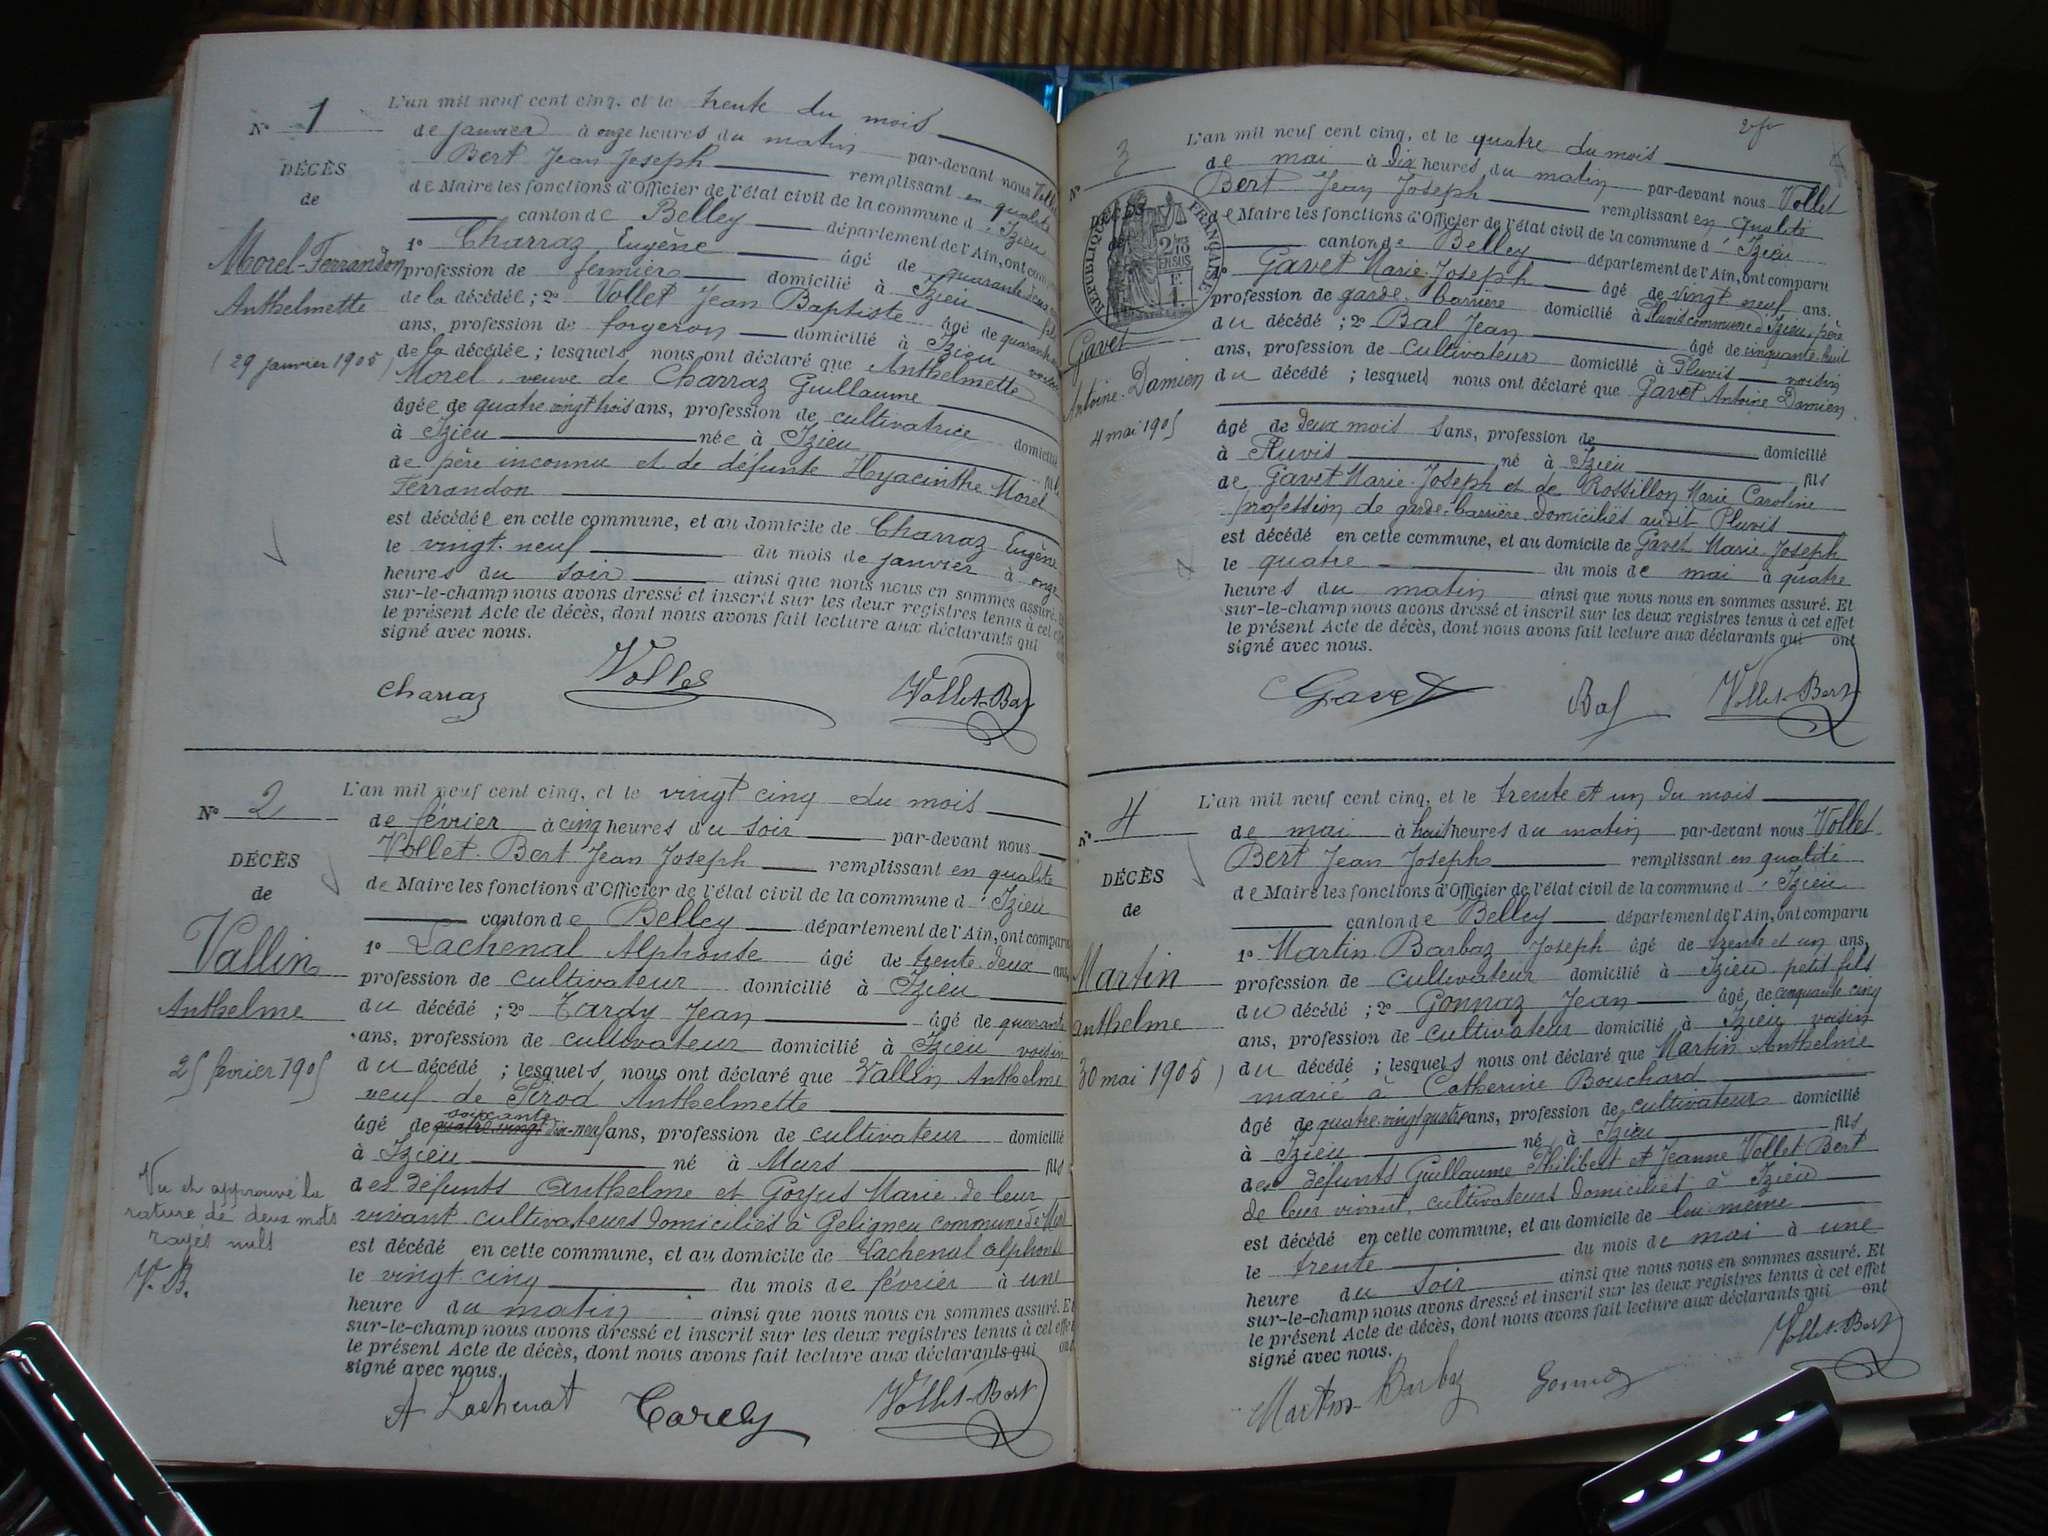 N° 1
DÉCÈS
de
Morel-Ferrandon
Anthelmette
(29 janvier 1905)
L'an mil neuf cent cinq, et le trente du mois
de janvier à onze heures du matin par-devant nous Vollet
Bert Jean Joseph remplissant en qualité
de Maire les fonctions d'Officier de l'état civil de la commune d'Izieu
canton de Belley département de l'Ain, ont comparu
1° Charraz Eugène âgé de quarante deux ans
profession de fermier domicilié à Izieu fils
de la décédée ; 2° Vollet Jean Baptiste âgé de quarante
ans, profession de forgeron domicilié à Izieu voisin
de la décédée ; lesquels nous ont déclaré que Anthelmette
Morel, veuve de Charraz Guillaume
âgée de quatre vingt trois ans, profession de cultivatrice domicilié
à Izieu née à Izieu fille
de père inconnu et de défunte Hyacinthe Morel
Ferrandon
est décédée en cette commune, et au domicile de Charraz Eugène
le vingt-neuf du mois de janvier à onze
heures du soir ainsi que nous nous en sommes assuré. Et
sur-le-champ nous avons dressé et inscrit sur les deux registres tenus à cet effet
le présent Acte de décès, dont nous avons fait lecture aux déclarants qui ont
signé avec nous.
Charraz Vollet Vollet-Bert
N° 2
DÉCÈS
de
Vallin
Anthelme
25 fevrier 1905
Vu et approuvé la
rature de deux mots
rayés nuls
V. B.
L'an mil neuf cent cinq, et le vingt cinq du mois
de février à cinq heures du soir par-devant nous
Vollet-Bert Jean Joseph remplissant en qualité
de Maire les fonctions d'Officier de l'état civil de la commune d'Izieu
canton de Belley département de l'Ain, ont comparu
1° Lachenal Alphonse âgé de trente deux ans
profession de cultivateur domicilié à Izieu
du décédé ; 2° Tardy Jean âgé de quarante
ans, profession de cultivateur domicilié à Izieu voisin
du décédé ; lesquels nous ont déclaré que Vallin Anthelme
veuf de Pirod Anthelmette
soixante
âgé de quatre vingt dix-neuf ans, profession de cultivateur domicilié
à Izieu né à Murs fils
des défunts Anthelme et Goyus Marie de leur
vivant cultivateurs domiciliés à Geligneu commune de Murs
est décédé en cette commune, et au domicile de Lachenal Alphonse
le vingt cinq du mois de février à une
heure du matin ainsi que nous nous en sommes assuré. Et
sur-le-champ nous avons dressé et inscrit sur les deux registres tenus à cet effet
le présent Acte de décès, dont nous avons fait lecture aux déclarants qui ont
signé avec nous.
A Lachenal Tardy Vollet-Bert
N° 3
DÉCÈS
RÉPUBLIQUE FRANÇAISE
2/10 EN SUS
Gavet
Antoine-Damien
4 mai 1905
L'an mil neuf cent cinq, et le quatre du mois
de mai à dix heures du matin par-devant nous Vollet
Bert Jean Joseph remplissant en qualité
de Maire les fonctions d'Officier de l'état civil de la commune d'Izieu
canton de Belley département de l'Ain, ont comparu
1° Gavet Marie-Joseph âgé de vingt neuf ans.
profession de garde-barrière domicilié à Pluvis commune d'Izieu, père
du décédé ; 2° Bal Jean âgé de cinquante-huit
ans, profession de cultivateur domicilié à Pluvis voisin
du décédé ; lesquels nous ont déclaré que Gavet Antoine Damien
âgé de deux mois ans, profession de domicilié
à Pluvis né à Izieu fils
de Gavet Marie-Joseph et de Rossillon Marie Caroline
profession de garde-barrière domiciliés audit Pluvis
est décédé en cette commune, et au domicile de Gavet Marie Joseph
le quatre du mois de mai à quatre
heures du matin ainsi que nous nous en sommes assuré. Et
sur-le-champ nous avons dressé et inscrit sur les deux registres tenus à cet effet
le présent Acte de décès, dont nous avons fait lecture aux déclarants qui ont
signé avec nous.
Gavet Bal Vollet-Bert
N° 4
DÉCÈS
de
Martin
Anthelme
30 mai 1905)
L'an mil neuf cent cinq, et le trente et un du mois
de mai à huit heures du matin par-devant nous Vollet
Bert Jean Joseph remplissant en qualité
de Maire les fonctions d'Officier de l'état civil de la commune d'Izieu
canton de Belley département de l'Ain, ont comparu
1° Martin Barbaz Joseph âgé de trente et un ans,
profession de cultivateur domicilié à Izieu petit fils
du décédé ; 2° Gonnaz Jean âgé de cinquante cinq
ans, profession de cultivateur domicilié à Izieu voisin
du décédé ; lesquels nous ont déclaré que Martin Anthelme
marié à Catherine Bouchard
âgé de quatre vingt quatre ans, profession de cultivateur domicilié
à Izieu né à Izieu fils
des défunts Guillaume Philibert et Jeanne Vollet Bert
de leur vivant, cultivateurs domiciliés à Izieu
est décédé en cette commune, et au domicile de lui même
le trente du mois de mai à une
heure du soir ainsi que nous nous en sommes assuré. Et
sur-le-champ nous avons dressé et inscrit sur les deux registres tenus à cet effet
le présent Acte de décès, dont nous avons fait lecture aux déclarants qui ont
signé avec nous.
Martin Barbaz Gonnaz Vollet-Bert